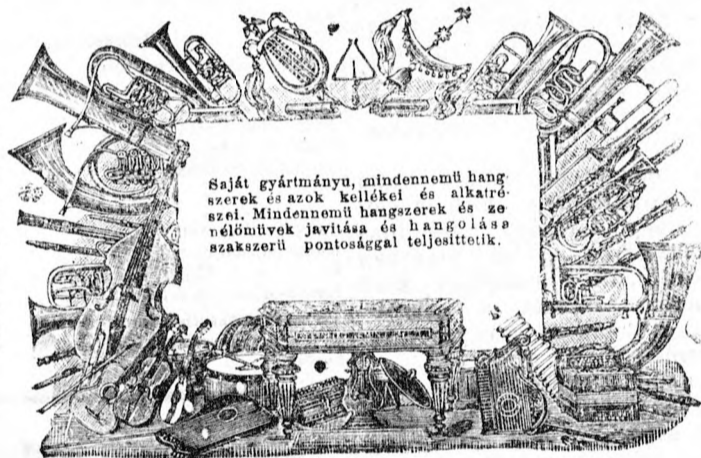 Saját gyártmányu, mindennemü hang-
szerek és azok kellékei és alkatré-
szei. Mindennemü hangszerek és ze
nélömüvek javitása és hangolása
szakszerü pontosággal teljesittetik.